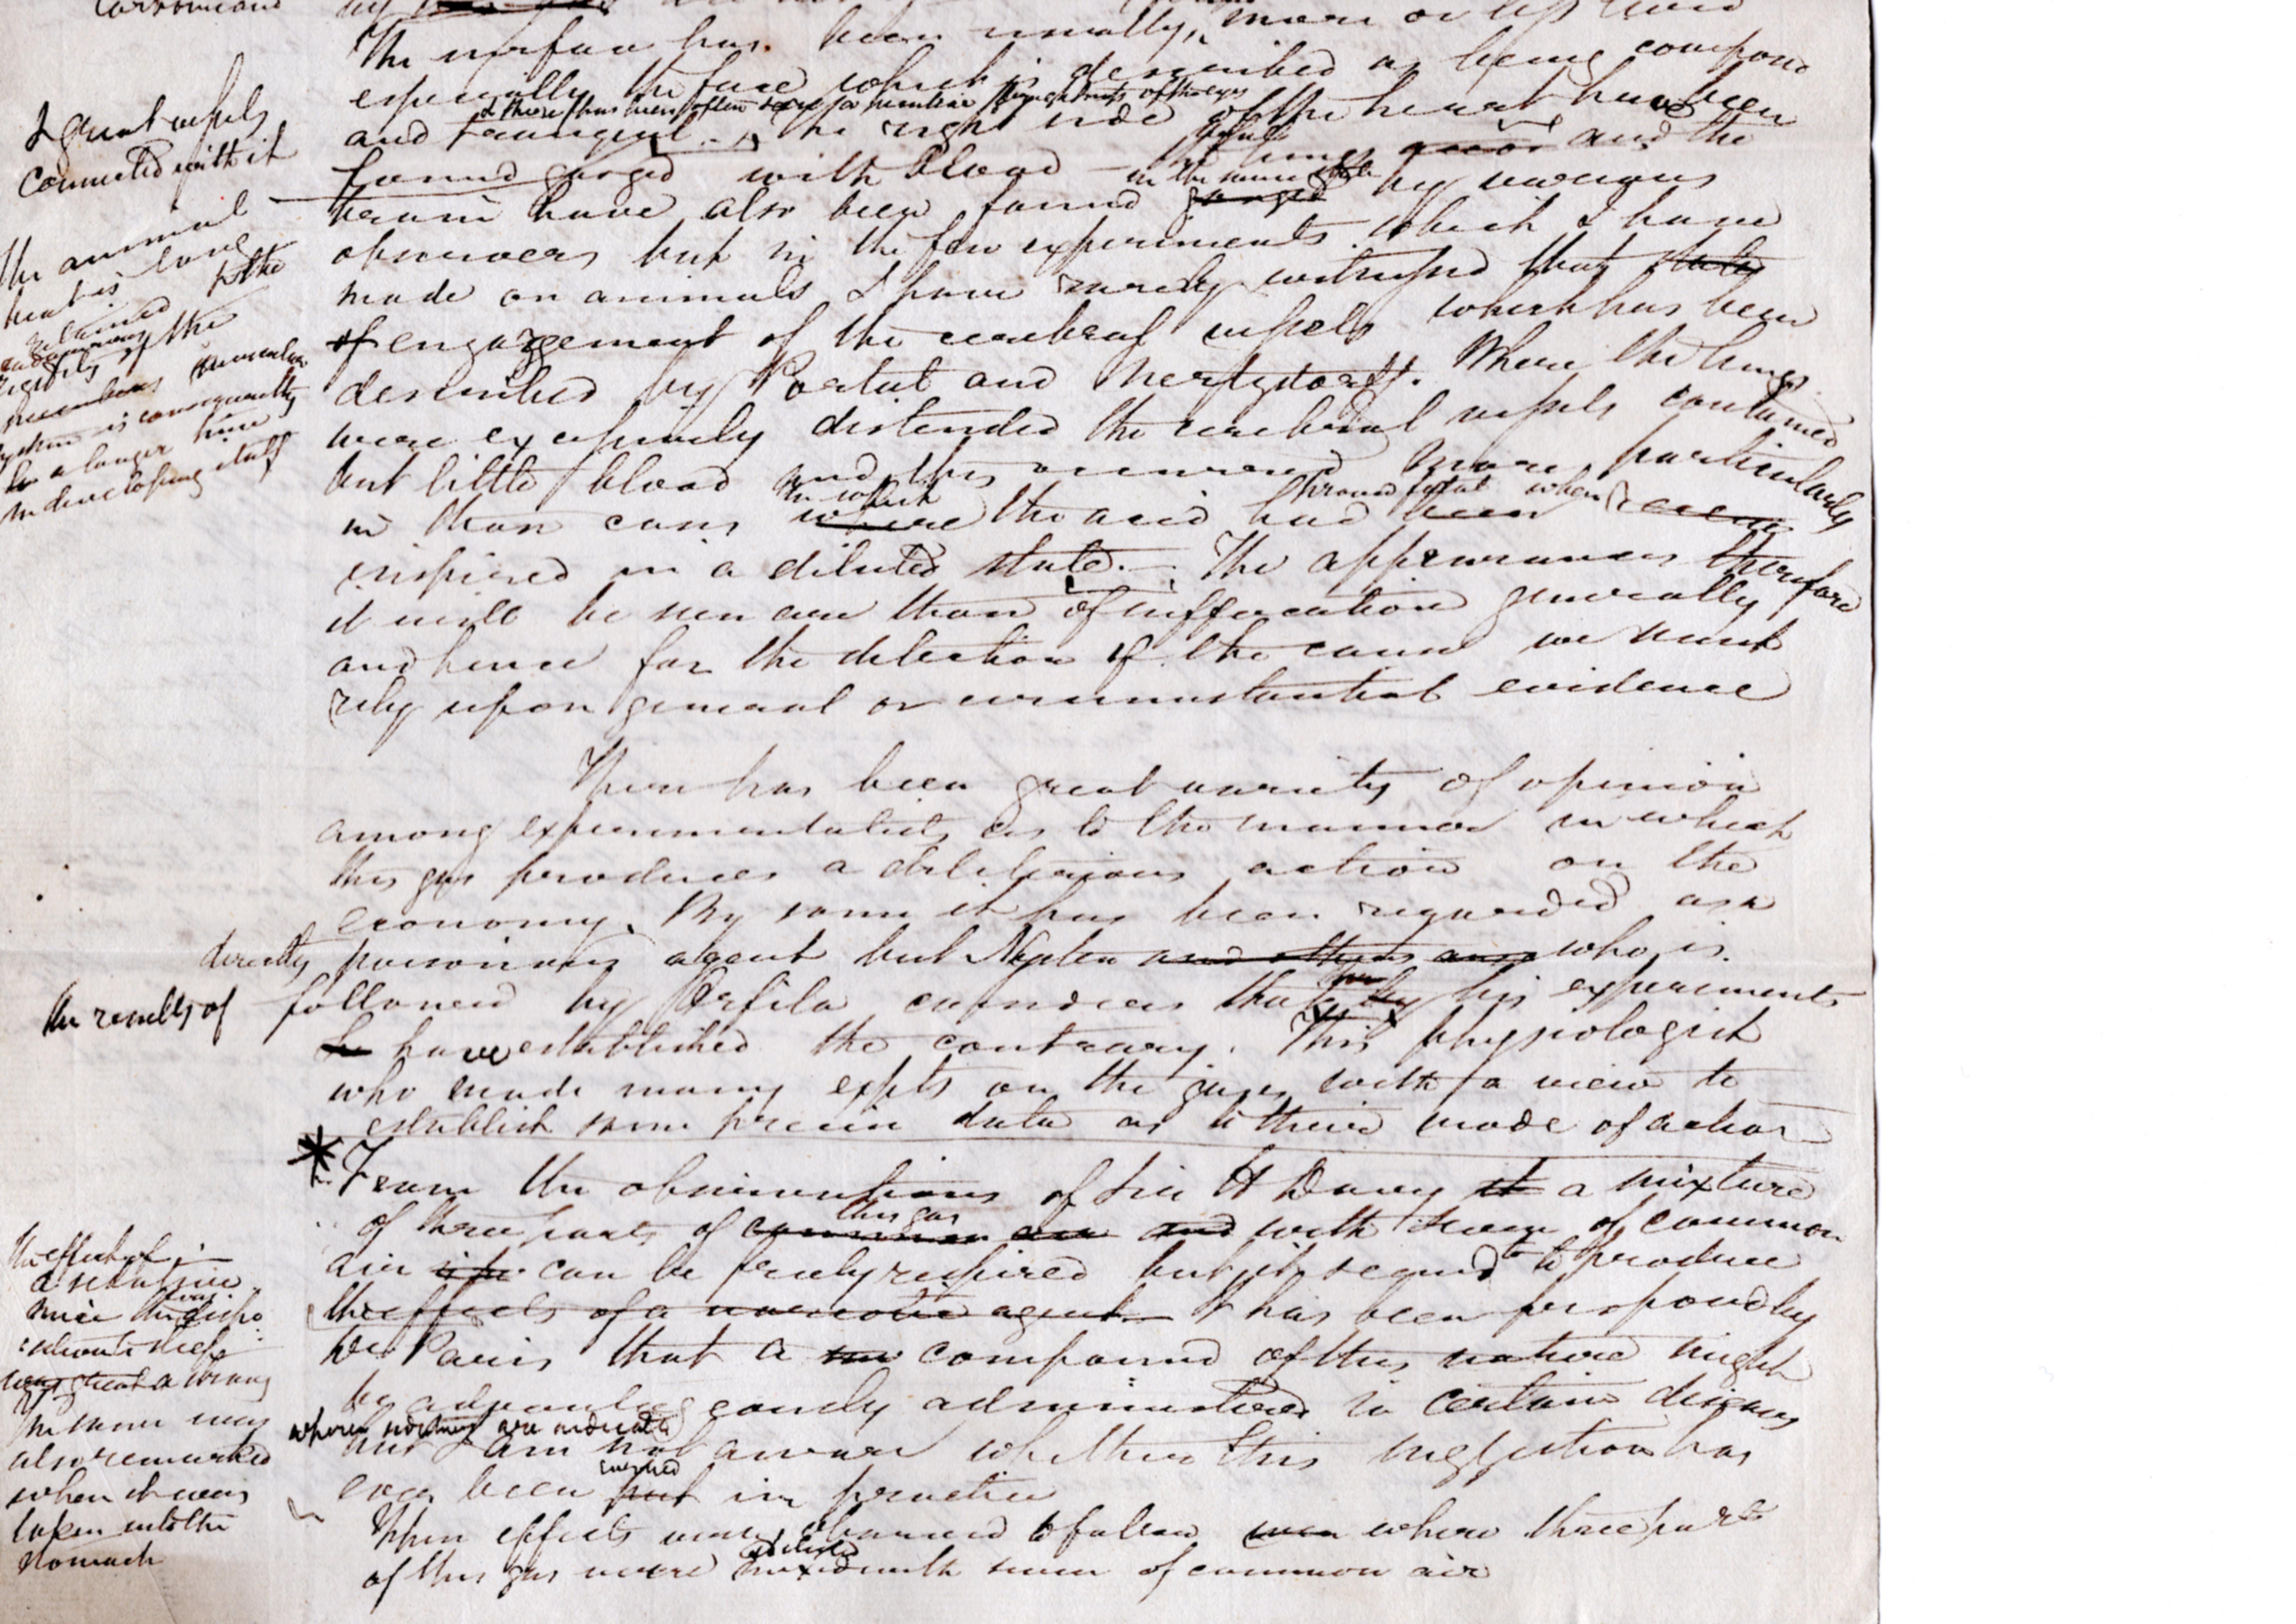 The surface has been usually, more or less livid
especially the face which is described as being composed
& there has been often seen a peculiar brightness of the eyes
and tranquil. The right side of the heart has been
& great vessels
connected with it
found gorged with blood - the lungs and the
in the same state
brain have also been found gorged by various
observers but in the few experiments which I have
made on animals I have rarely witnessed that state
of engorgement of the cerebral vessels which has been
described by Portal and When the lungs
were excessively distended the cerebral vessels contained
but little blood and this occurred more particularly
in which proved fatal when
in those cases where the acid had been
inspired in a diluted state. - The appearances therefore
it will be seen are those of suffocation generally
and hence for the detection of the cause we must
rely upon general or circumstantial evidence
the animal
heat is long
retained
rigidity of the
muscular
system is consequently
a longer time
in developing itself
There has been great variety of opinion
among experimentalists as to the manner in which
this gas produces a deleterious action on the
economy. By some it has been regarded as a
directly poisonous agent but Nysten and others who is
followed by Orfila considers that by his experiments
the results of
he have established the contrary. This physiologist
who made many expts on the gases with a view to
establish some precise data as to their mode of action
* From the observations of Sir H Davy it a mixture
this gas
of three parts of common air and with seven of common
air can be freely respired but it seemed to produce
the effects of a narcotic agent - It has been proposed by
Dr Paris that a compound of this nature might
be advantageously administered in certain diseases
where sedatives are indicated
but I am not aware whether this suggestion has
carried
ever been put in practice
the effect of
a sedative
since the dispo
sition to sleep
was great
the same was
also remarked
when it was
taken into the
stomach
These effects were observed to follow even where three parts
diluted
of this gas were mixed with seven of common air